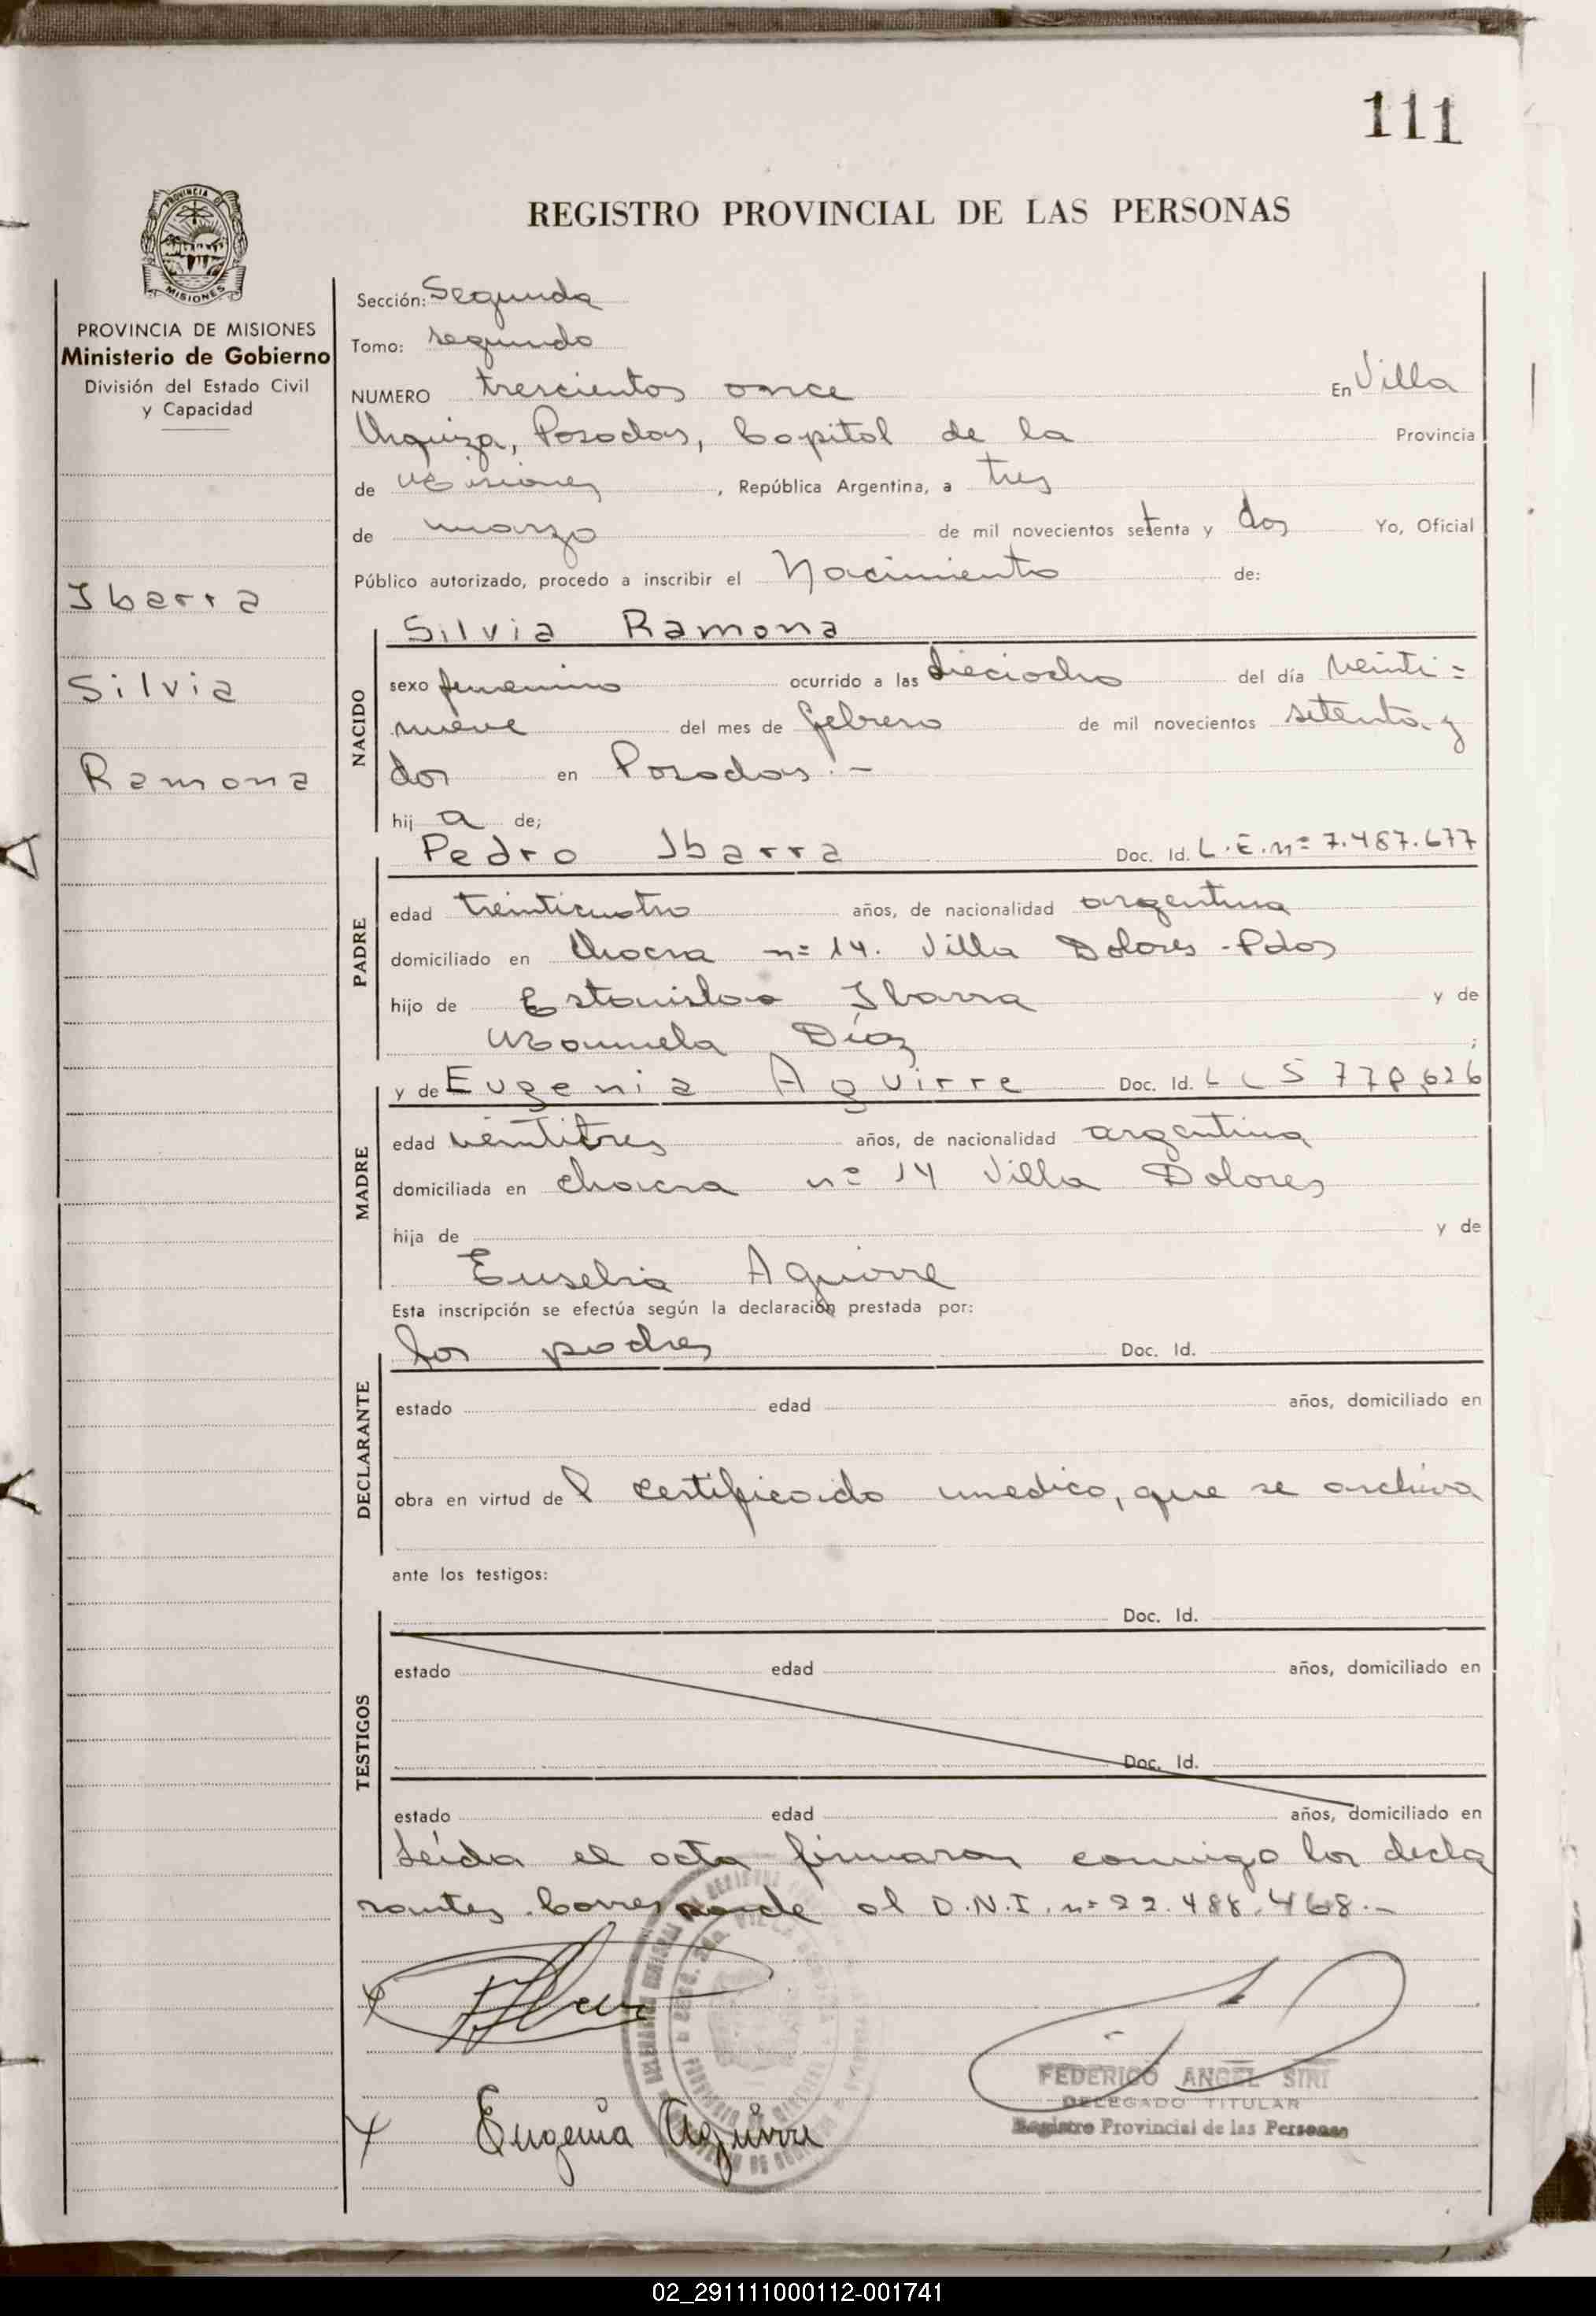 111
REGISTRO PROVINCIAL DE LAS PERSONAS
PROVINCIA
MISIONES
PROVINCIA DE MISIONES
Ministerio de Gobierno
División del Estado Civil
y Capacidad
Ibarra
Silvia
Ramona
Sección: Segunda
Tomo: segundo
NUMERO trescientos once En Villa
Urquiza, Posadas, Capital de la Provincia
de Misiones, República Argentina, a tres
de marzo de mil novecientos setenta y dos Yo, Oficial
Público autorizado, procedo a inscribir el Nacimiento de:
NACIDO
Silvia Ramona
sexo femenino ocurrido a las dieciocho del día veinti=
nueve del mes de febrero de mil novecientos setenta y
dos en Posadas.-
hij a de;
PADRE
Pedro Ibarra Doc. Id. L.E.nº 7.487.677
edad treinticuatro años, de nacionalidad argentina
domiciliado en Chacra nº 14. Villa Dolores - Pdas
hijo de Estanislao Ibarra y de
Manuela Díaz ;
MADRE
y de Eugenia Aguirre Doc. Id. L C 5 778,626
edad veintitres años, de nacionalidad argentina
domiciliada en chacra nº 14 Villa Dolores
hija de y de
Eusebia Aguirre
Esta inscripción se efectúa según la declaración prestada por:
DECLARANTE
los padres Doc. Id.
estado edad años, domiciliado en
obra en virtud de l certificado medico, que se archiva
ante los testigos:
TESTIGOS
Doc. Id.
estado edad años, domiciliado en
Doc. Id.
estado edad años, domiciliado en
Leída el acta firmaron conmigo los decla
rantes. Corresponde al D.N.I. nº 22.488.468.-
FEDERICO ANGEL SIRI
DELEGADO TITULAR
Registro Provincial de las Personas
Eugenia Aguirre
02_291111000112-001741